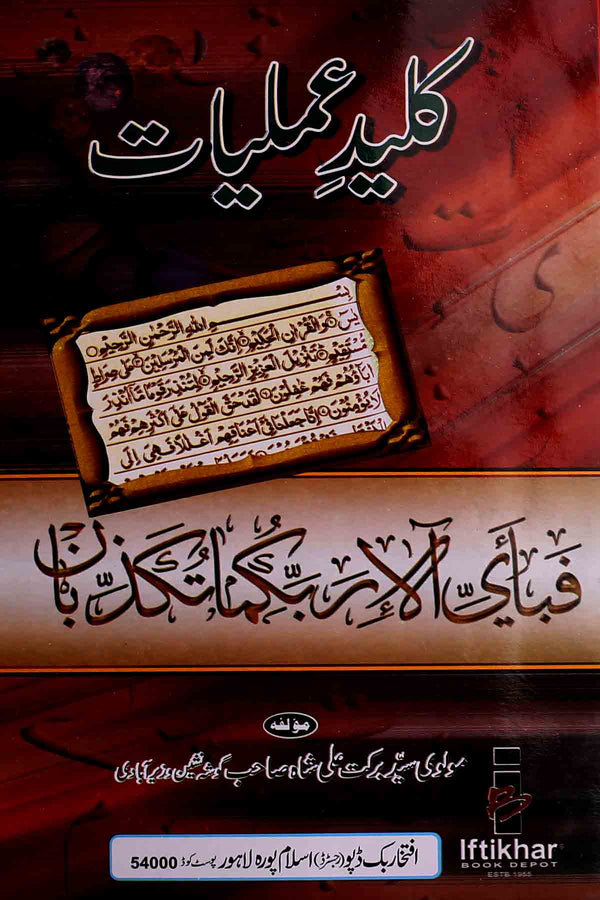 کلیدِ عملیات
بِسْــــــمِ اللهِ الرَّحْمٰنِ الرَّحِيْمِ
يٰسٓ وَالْقُرْاٰنِ الْحَكِيْمِ اِنَّكَ لَمِنَ الْمُرْسَلِيْنَ عَلٰى صِرَاطٍ
مُّسْتَقِيْمٍ تَنْزِيْلَ الْعَزِيْزِ الرَّحِيْمِ لِتُنْذِرَ قَوْمًا مَّاۤ اُنْذِرَ
اٰبَآؤُهُمْ فَهُمْ غٰفِلُوْنَ لَقَدْ حَقَّ الْقَوْلُ عَلٰٓى اَكْثَرِهِمْ فَهُمْ
لَا يُؤْمِنُوْنَ اِنَّا جَعَلْنَا فِيْٓ اَعْنَاقِهِمْ اَغْلٰلًا فَهِيَ اِلَى
فَبِأَيِّ آلَاءِ رَبِّكُمَا تُكَذِّبَانِ
مؤلفہ
مولوی سیّد برکت علی شاہ صاحب گوشہ نشین وزیرآبادی
Iftikhar
BOOK DEPOT
ESTB 1955
افتخار بک ڈپو (رجسٹرڈ) اسلام پورہ لاہور پوسٹ کوڈ 54000